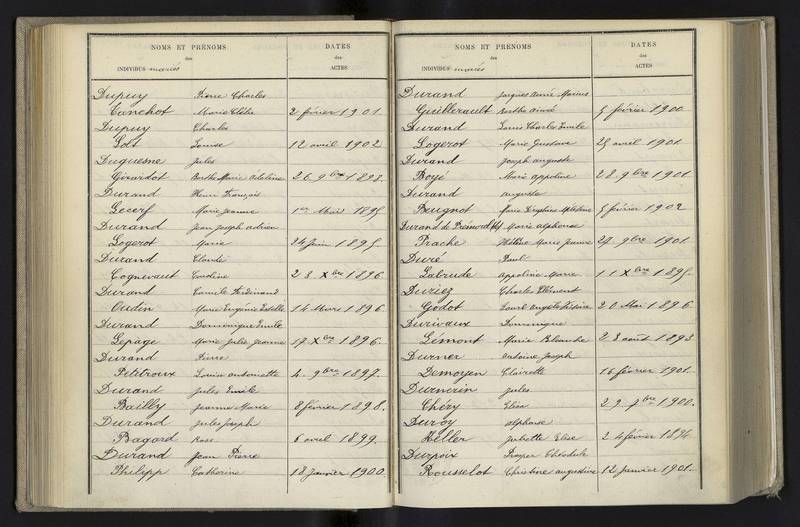 NOMS ET PRÉNOMS
des
INDIVIDUS mariés
DATES
des
ACTES
Dupuy Pierre Charles
Canchot Marie Clélie 2 février 1901.
Dupuy Charles
Lott Louise 12 avril 1902.
Duquesne Jules
Girardot Berthe Marie Adeline 26 9bre 1893.
Durand Henri François
Lecerf Marie Jeanne 1er Mars 1895.
Durand Jean Joseph Adrien
Logerot Marie 24 Juin 1895.
Durand Claude
Cognevaut Caroline 23 Xbre 1896
Durand Camille Ferdinand
Oudin Marie Eugénie Estelle 14 Mars 1896.
Durand Dominique Emile
Lepage Marie Julie Jeanne 17 Xbre 1896.
Durand Pierre
Petitroux Louise Antoinette 4. 9bre 1897.
Durand Jules Emile
Bailly Jeanne Marie 8 février 1898.
Durand Jules Joseph
Bagard Rose 6 avril 1899.
Durand Jean Pierre
Philipp Catherine 18 Janvier 1900.
NOMS ET PRÉNOMS
des
INDIVIDUS mariés
DATES
des
ACTES
Durand Jacques Aimé Marius
Guillerault Berthe Aimée 5 février 1900.
Durand Louis Charles Emile
Logerot Marie Gustave 25 avril 1901.
Durand Joseph Auguste
Boyé Marie Appoline 28. 9bre 1901.
Durand Auguste
Beugnot Marie Célestine 5 février 1902
Durand de Prémorel Marie Alphonse
Prache Hélène Marie Jeanne 27. 9bre 1901.
Duré Paul
Labrude Appoline Marie 11 Xbre 1895.
Duriez Charles Clément
Godot 20 Mai 1896
Durivaux Dominique
Lémont Marie Blanche 28 août 1893
Durner Antoine Joseph
Demoyen Clairette 16 février 1901.
Durnerin Jules
Chéry Elisa 29. 9bre 1900.
Duroy Alphonse
Heller Juliette Elise 24 février 1894.
Durpoix Prosper Théodule
Rousselot Christine Augustine 12 janvier 1901.